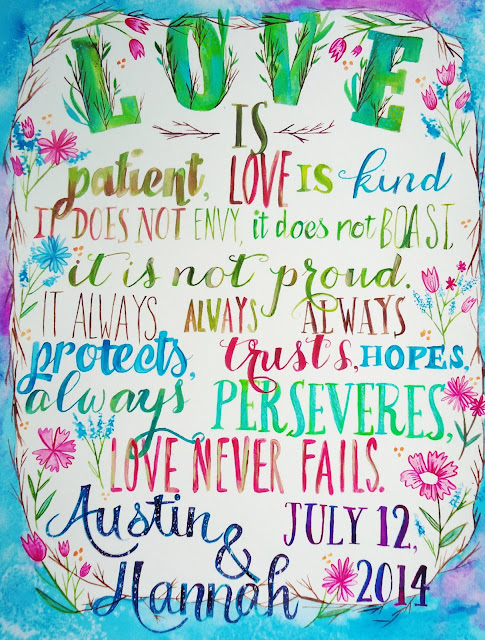 LOVE
IS
patient, LOVE IS kind
IT DOES NOT ENVY, it does not BOAST,
it is not proud.
IT ALWAYS ALWAYS ALWAYS
protects, trusts, HOPES,
always PERSEVERES,
LOVE NEVER FAILS.
Austin JULY 12,
& 2014
Hannah